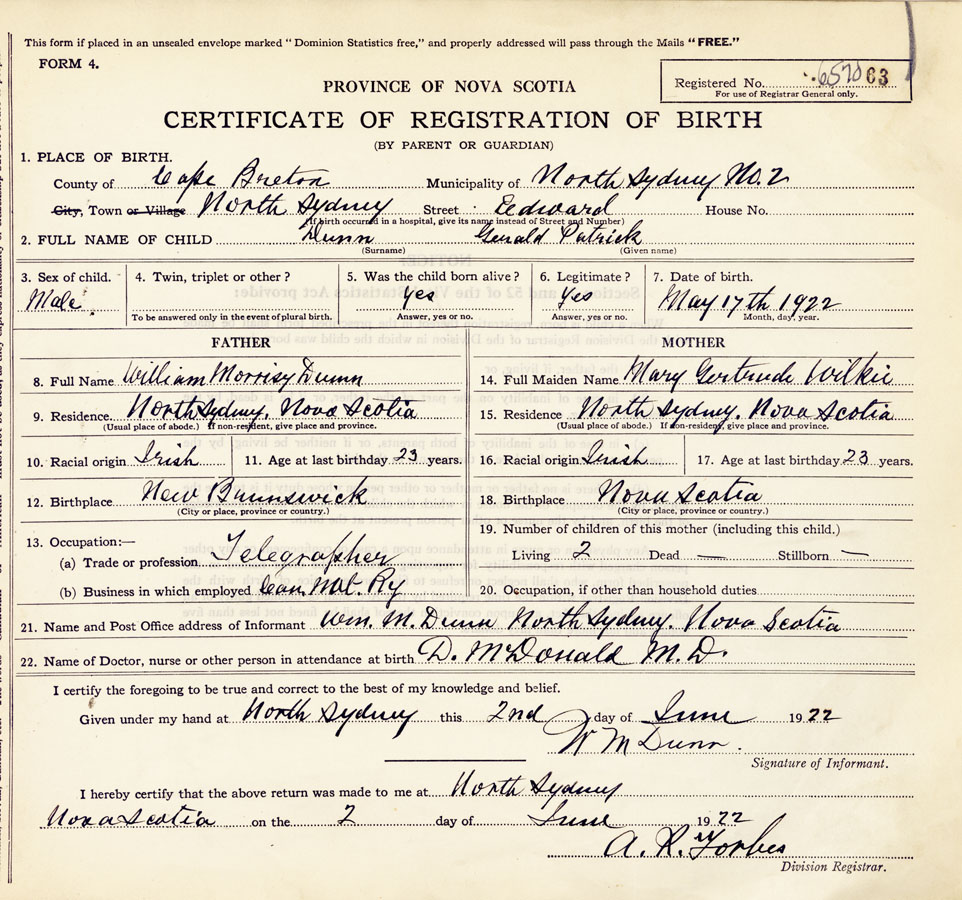 This form if placed in an unsealed envelope marked "Dominion Statistics free," and properly addressed will pass through the Mails "FREE."
FORM 4.
Registered No. 657063
For use of Registrar General only.
PROVINCE OF NOVA SCOTIA
CERTIFICATE OF REGISTRATION OF BIRTH
(BY PARENT OR GUARDIAN)
1. PLACE OF BIRTH.
County of Cape Breton Municipality of North Sydney No. 2
City, Town or Village North Sydney Street Edward House No.
(If birth occurred in a hospital, give its name instead of Street and Number)
2. FULL NAME OF CHILD Dunn Gerald Patrick
(Surname) (Given name)
3. Sex of child. 4. Twin, triplet or other? 5. Was the child born alive? 6. Legitimate? 7. Date of birth.
Male. yes Yes May 17th 1922
To be answered only in the event of plural birth. Answer, yes or no. Answer, yes or no. Month, day, year.
FATHER MOTHER
8. Full Name William Morrisy Dunn 14. Full Maiden Name Mary Gertrude Wilkie
9. Residence. North Sydney. Nova Scotia 15. Residence North Sydney. Nova Scotia
(Usual place of abode.) If non-resident, give place and province. (Usual place of abode.) If non-resident, give place and province.
10. Racial origin Irish 11. Age at last birthday 23 years. 16. Racial origin Irish 17. Age at last birthday 23 years.
12. Birthplace New Brunswick 18. Birthplace Nova Scotia
(City or place, province or country.) (City or place, province or country.)
13. Occupation:— 19. Number of children of this mother (including this child.)
(a) Trade or profession Telegrapher Living 2 Dead — Stillborn —
(b) Business in which employed Can. Nat. Ry 20. Occupation, if other than household duties
21. Name and Post Office address of Informant Wm. M. Dunn North Sydney. Nova Scotia
22. Name of Doctor, nurse or other person in attendance at birth D. McDonald M.D.
I certify the foregoing to be true and correct to the best of my knowledge and belief.
Given under my hand at North Sydney this 2nd day of June 1922
W M Dunn.
Signature of Informant.
I hereby certify that the above return was made to me at North Sydney
Nova Scotia on the 2 day of June 1922
A. R. Forbes
Division Registrar.